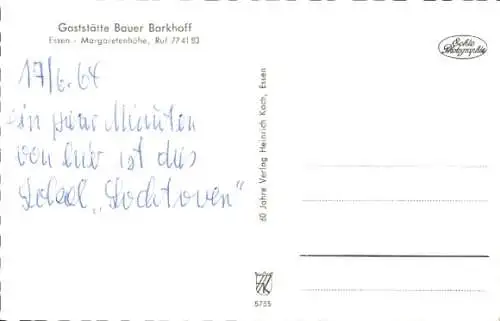 Gaststätte Bauer Barkhoff
Essen - Margaretenhöhe, Ruf 77 41 83
Echte Photographie
17/6.64
in paar Minuten
von hier ist das
Lokal „Dochtoven"
60 Jahre Verlag Heinrich Koch, Essen
5735